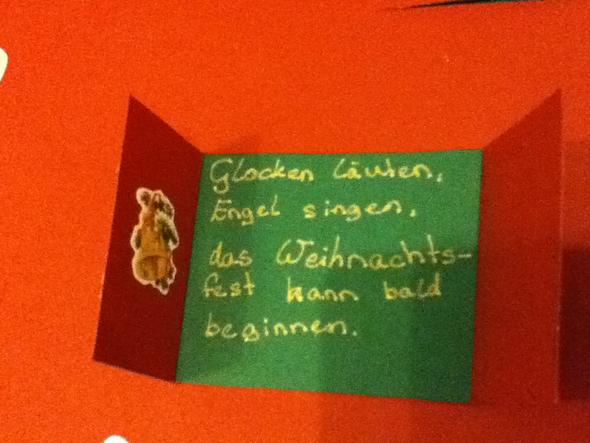 Glocken läuten,
Engel singen,
das Weihnachts-
fest kann bald
beginnen.